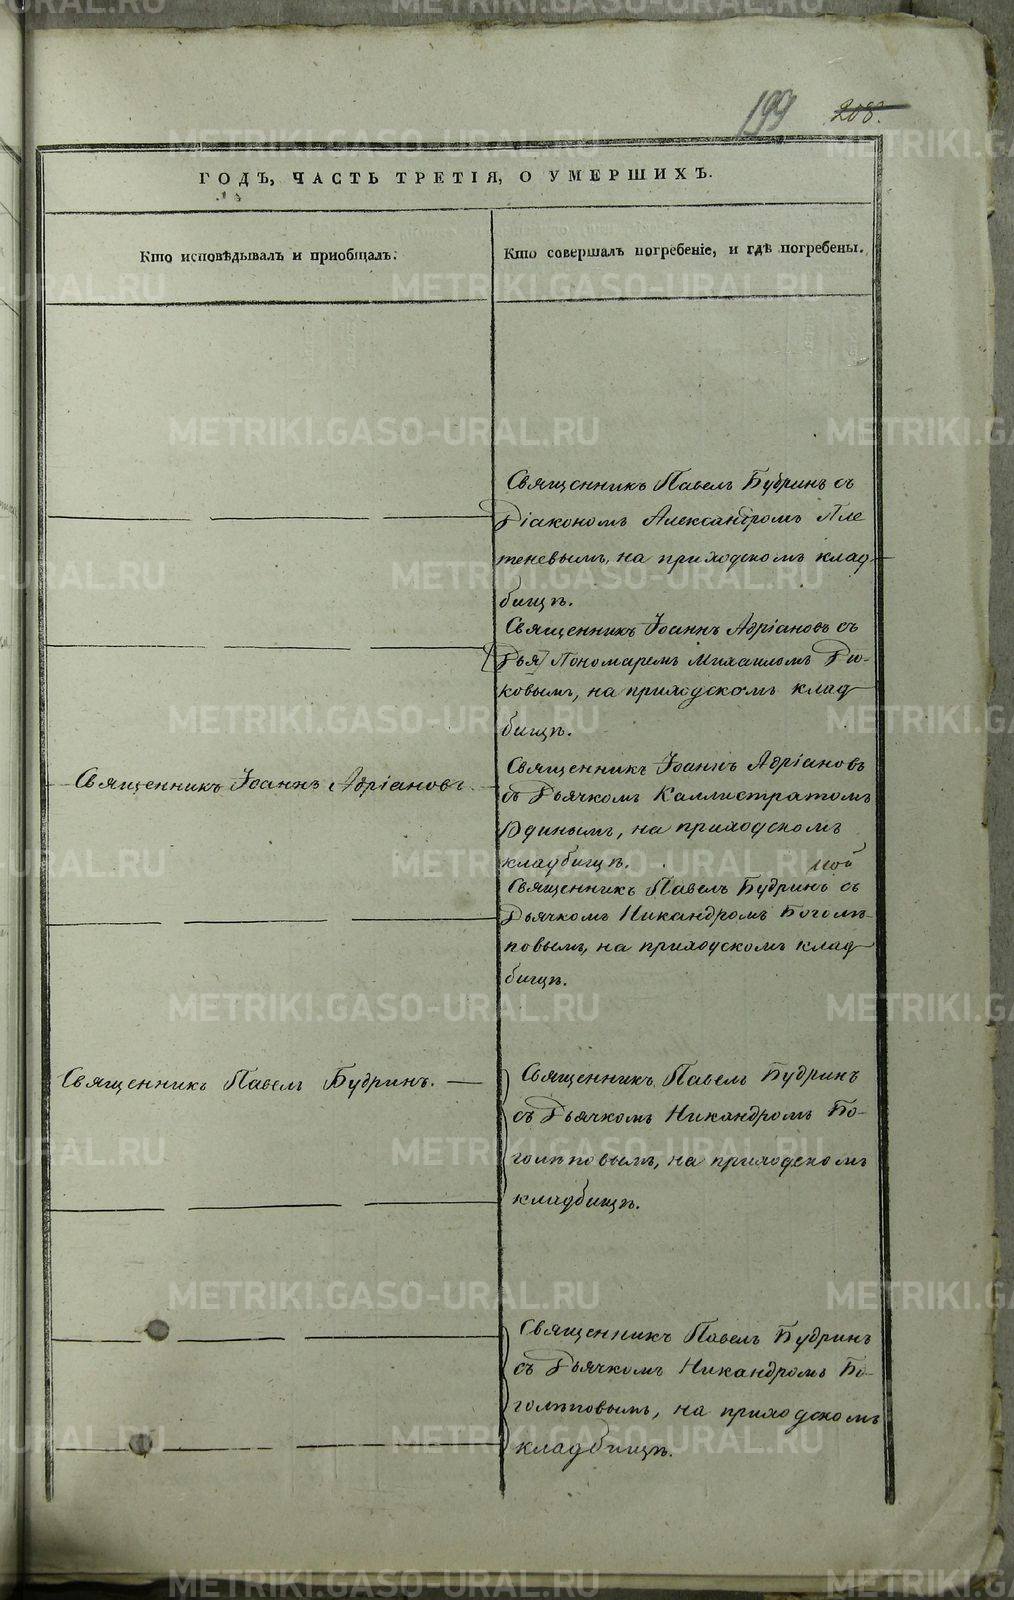 199 208.
ГОДЪ, ЧАСТЬ ТРЕТІЯ, О УМЕРШИХЪ.
Кто исповѣдывалъ и приобщалъ.
Кто совершалъ погребеніе, и гдѣ погребены.
Священникъ Павелъ Будринъ съ
Діакономъ Александромъ Пле
теневымъ, на приходскомъ клад-
бищѣ.
Священникъ Іоаннъ Адріановъ съ
(Дья) Пономаремъ Михаиломъ
ковымъ, на приходскомъ клад
бищѣ.
Священникъ Іоаннъ Адріановъ.
Священникъ Іоаннъ Адріановъ
съ Дьячкомъ Каллистратомъ
на приходскомъ
кладбищѣ.
Священникъ Павелъ Будринъ съ
Дьячкомъ Никандромъ Боголѣ-
повымъ, на приходскомъ клад
бищѣ.
Священникъ Павелъ Будринъ.
Священникъ Павелъ Будринъ
съ Дьячкомъ Никандромъ Бо-
голѣповымъ, на приходскомъ
кладбищѣ.
Священникъ Павелъ Будринъ
съ Дьячкомъ Никандромъ Бо-
голѣповымъ, на приходскомъ
кладбищѣ.
METRIKI.GASO-URAL.RU